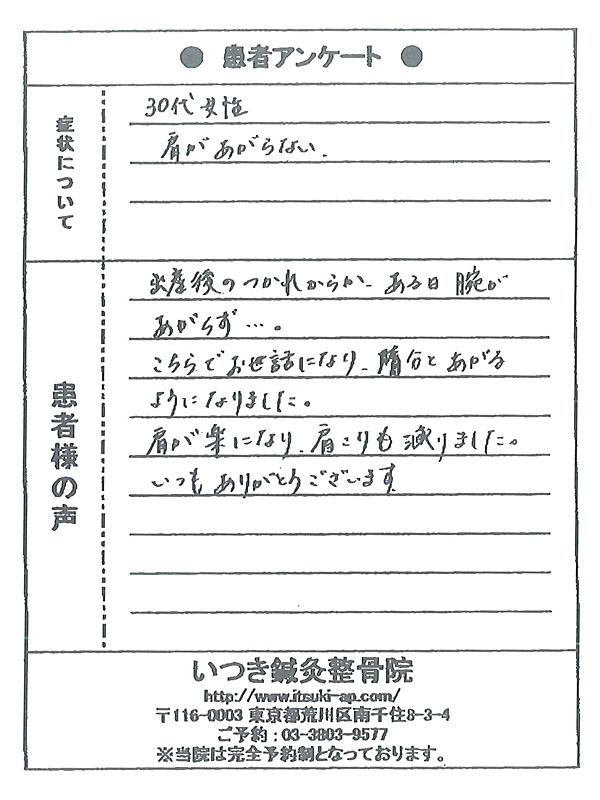 ● 患者アンケート ●
症状について
30代 女性
肩があがらない.
患者様の声
出産後のつかれからか、ある日 腕が
あがらず…。
こちらでお世話になり、随分とあがる
ようになりました。
肩が楽になり、肩こりも減りました。
いつもありがとうございます
いつき鍼灸整骨院
http://www.itsuki-ap.com/
〒116-0003 東京都荒川区南千住8-3-4
ご予約：03-3803-9577
※当院は完全予約制となっております。